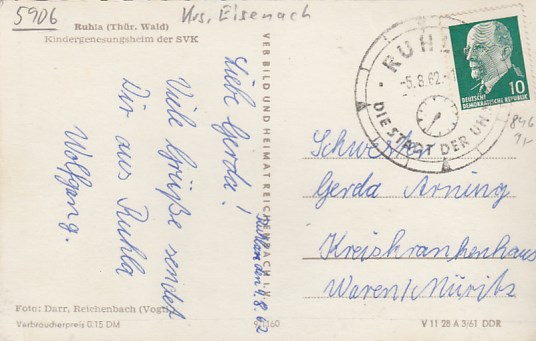 5906
Krs. Eisenach
Ruhla (Thür. Wald)
Kindergenesungsheim der SVK
Liebe Gerda!
Viele Grüße sendet
Dir aus Ruhla
Wolfgang.
Ruhla den 4.8.62
VEB BILD UND HEIMAT REICHENBACH I. V.
Foto: Darr, Reichenbach (Vogtl)
Verbraucherpreis 0.15 DM
RUHLA
-5.8.62
DIE STADT DER UHREN
DEUTSCHE
DEMOKRATISCHE REPUBLIK
10
846
Schwester
Gerda Arning
Kreiskrankenhaus
Waren/Müritz
V 11 28 A 3/61 DDR